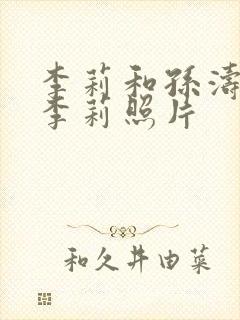 李莉和孫濤
李莉照片
和久井由菜